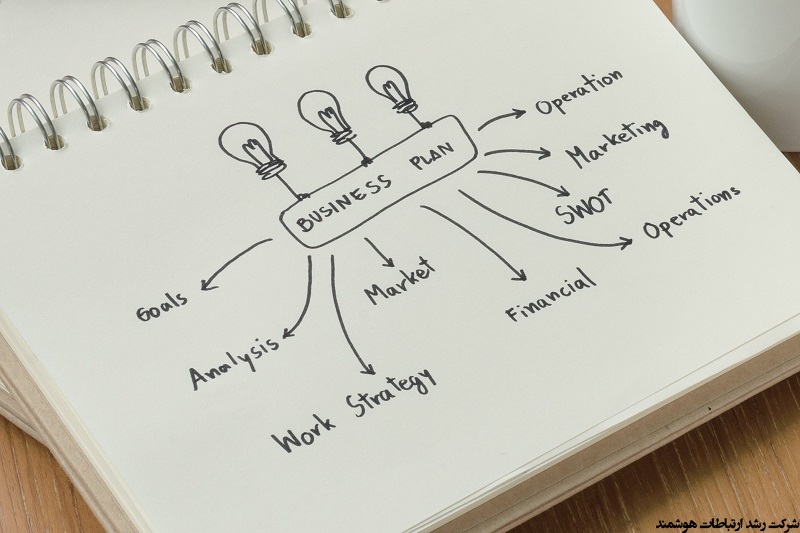 BUSINESS PLAN
Operation
Marketing
SWOT
Operations
Financial
Market
Work Strategy
Analysis
Goals
شرکت رشد ارتباطات هوشمند